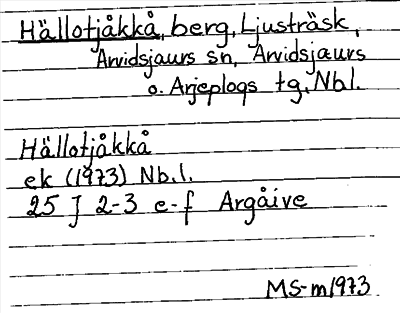 Hällotjåkkå, berg, Ljusträsk,
Arvidsjaurs sn, Arvidsjaurs
o. Arjeplogs tg, Nbl.
Hällotjåkkå
ek (1973) Nb.l.
25 J 2-3 e-f Argåive
MS-m1973